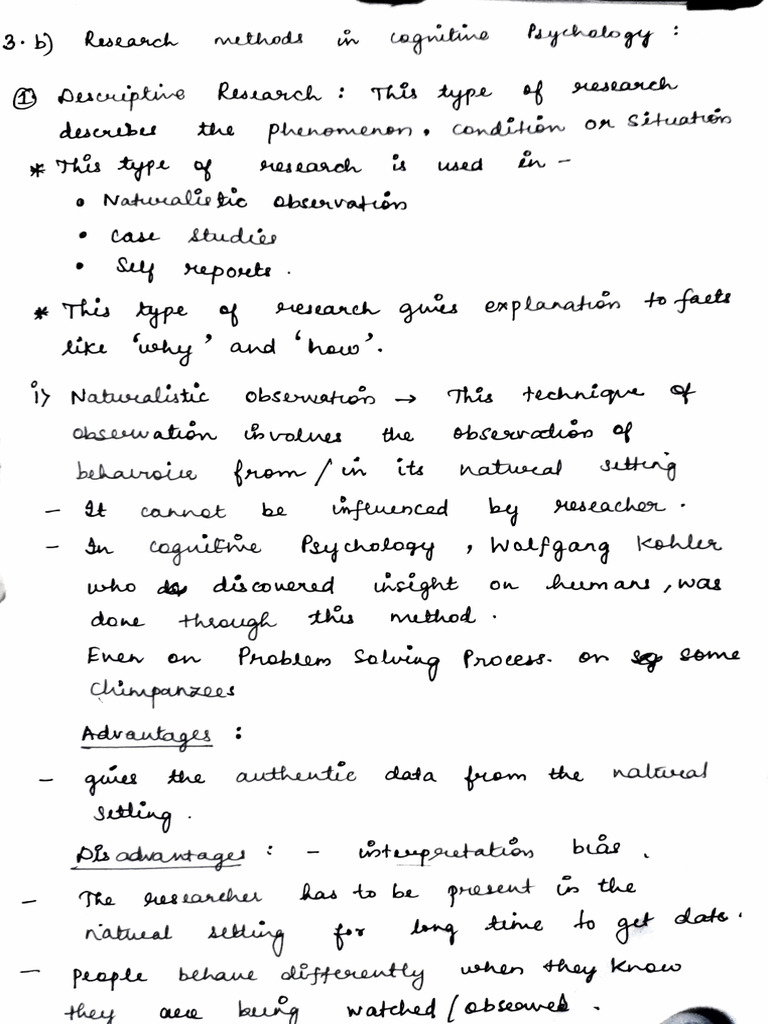 3. b) Research methods in cognitive Psychology :
① Descriptive Research : This type of research
describes the phenomenon, condition or situation
* This type of research is used in -
• Naturalistic observation
• case studies
• Self reports.
* This type of research gives explanation to facts
like 'why' and 'how'.
i) Naturalistic observation → This technique of
observation involves the observation of
behavoiur from/in its natural setting
- It cannot be influenced by reseacher.
- In cognitive Psychology, Wolfgang Kohler
who discovered insight on humans, was
done through this method.
Even on Problem Solving Process. on some
Chimpanzees
Advantages :
- gives the authentic data from the natural
setting.
Disadvantages : - interpretation bias.
- The researcher has to be present in the
natural setting for long time to get data.
- people behave differently when they know
they are being watched/observed.